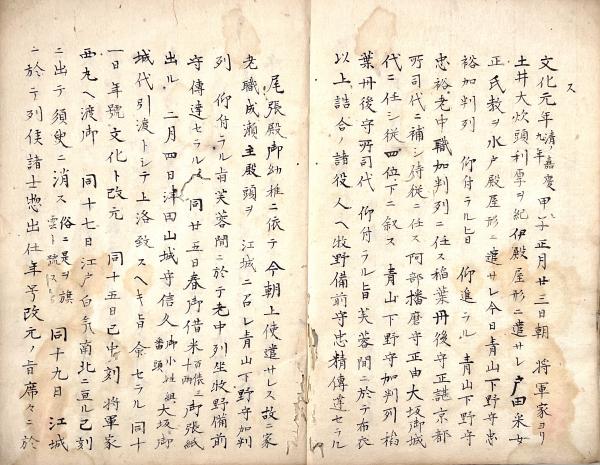 ス
文化元年清ノ嘉慶九年甲子正月廿三日朝　将軍家ヨリ
土井大炊頭利厚ヲ紀伊殿屋形ニ遣サレ戸田采女
正氏教ヲ水戸殿屋形ニ遣サレ今日青山下野守忠
裕加判列　仰付ラル旨　仰進ラル　青山下野守
忠裕老中職加判列ニ任ス稲葉丹後守正諶京都
所司代ニ補シ侍従ニ任ス阿部播磨守正由大坂御城
代ニ任シ従四位下ニ叙ス　青山下野守加判列稲
葉丹後守所司代　仰付ラル旨芙蓉間ニ於テ布衣
以上詰合ノ諸役人ヘ牧野備前守忠精傳達セラル
尾張殿御幼稚ニ依テ今朝上使遣サレス故ニ家
老職成瀬主殿頭ヲ　江城ニ召レ青山下野守加判
列　仰付ラル旨芙蓉間ニ於テ老中列坐牧野備前
守傳達セラル　同廿五日春御借米百俵三十両御張紙
出ル　二月四日津田山城守信久御小姓組番頭大坂御
城代引渡トシテ上洛致スヘキ旨命セラル　同十
一日年號文化ト改元　同十五日巳中刻　将軍家
西丸ヘ渡御　同十七日江戸白気南北ニ亘ル巳刻
ニ出テ須臾ニ消ス俗ニ是ヲ旗雲ト號ス　同十九日　江城
ニ於テ列侯諸士惣出仕年号改元ノ旨席々ニ於